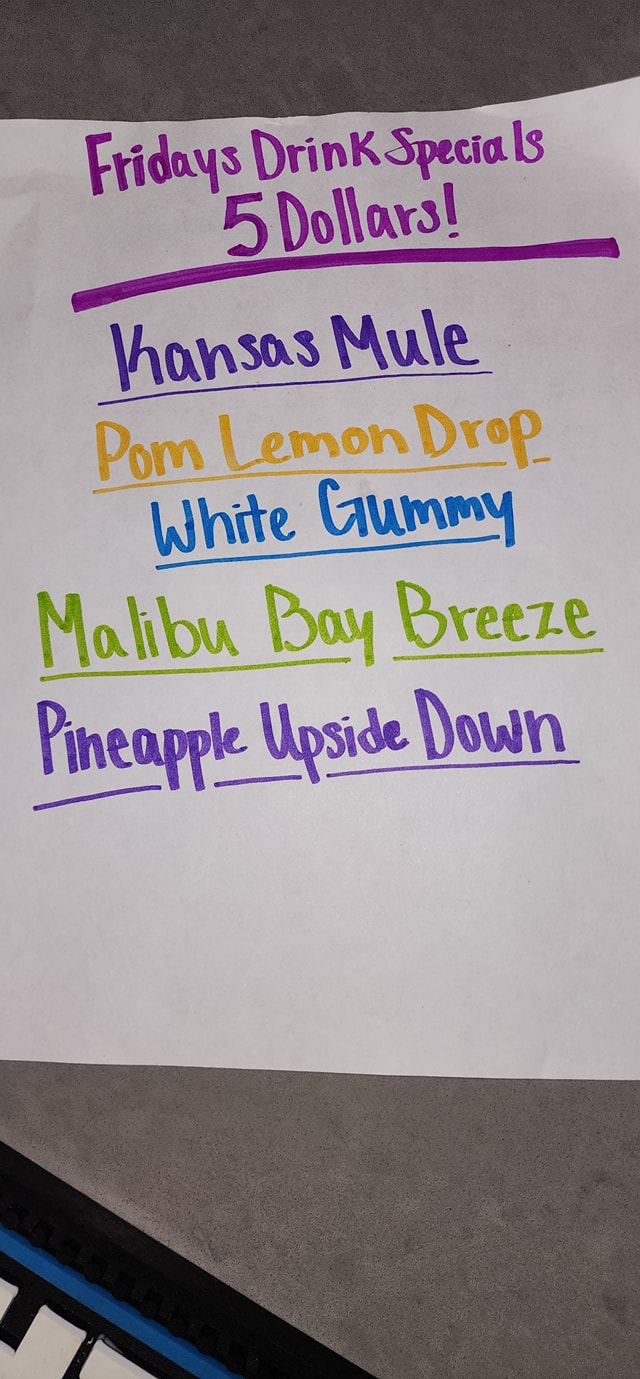 Fridays Drink Specials
5 Dollars!
Kansas Mule
Pom Lemon Drop
White Gummy
Malibu Bay Breeze
Pineapple Upside Down